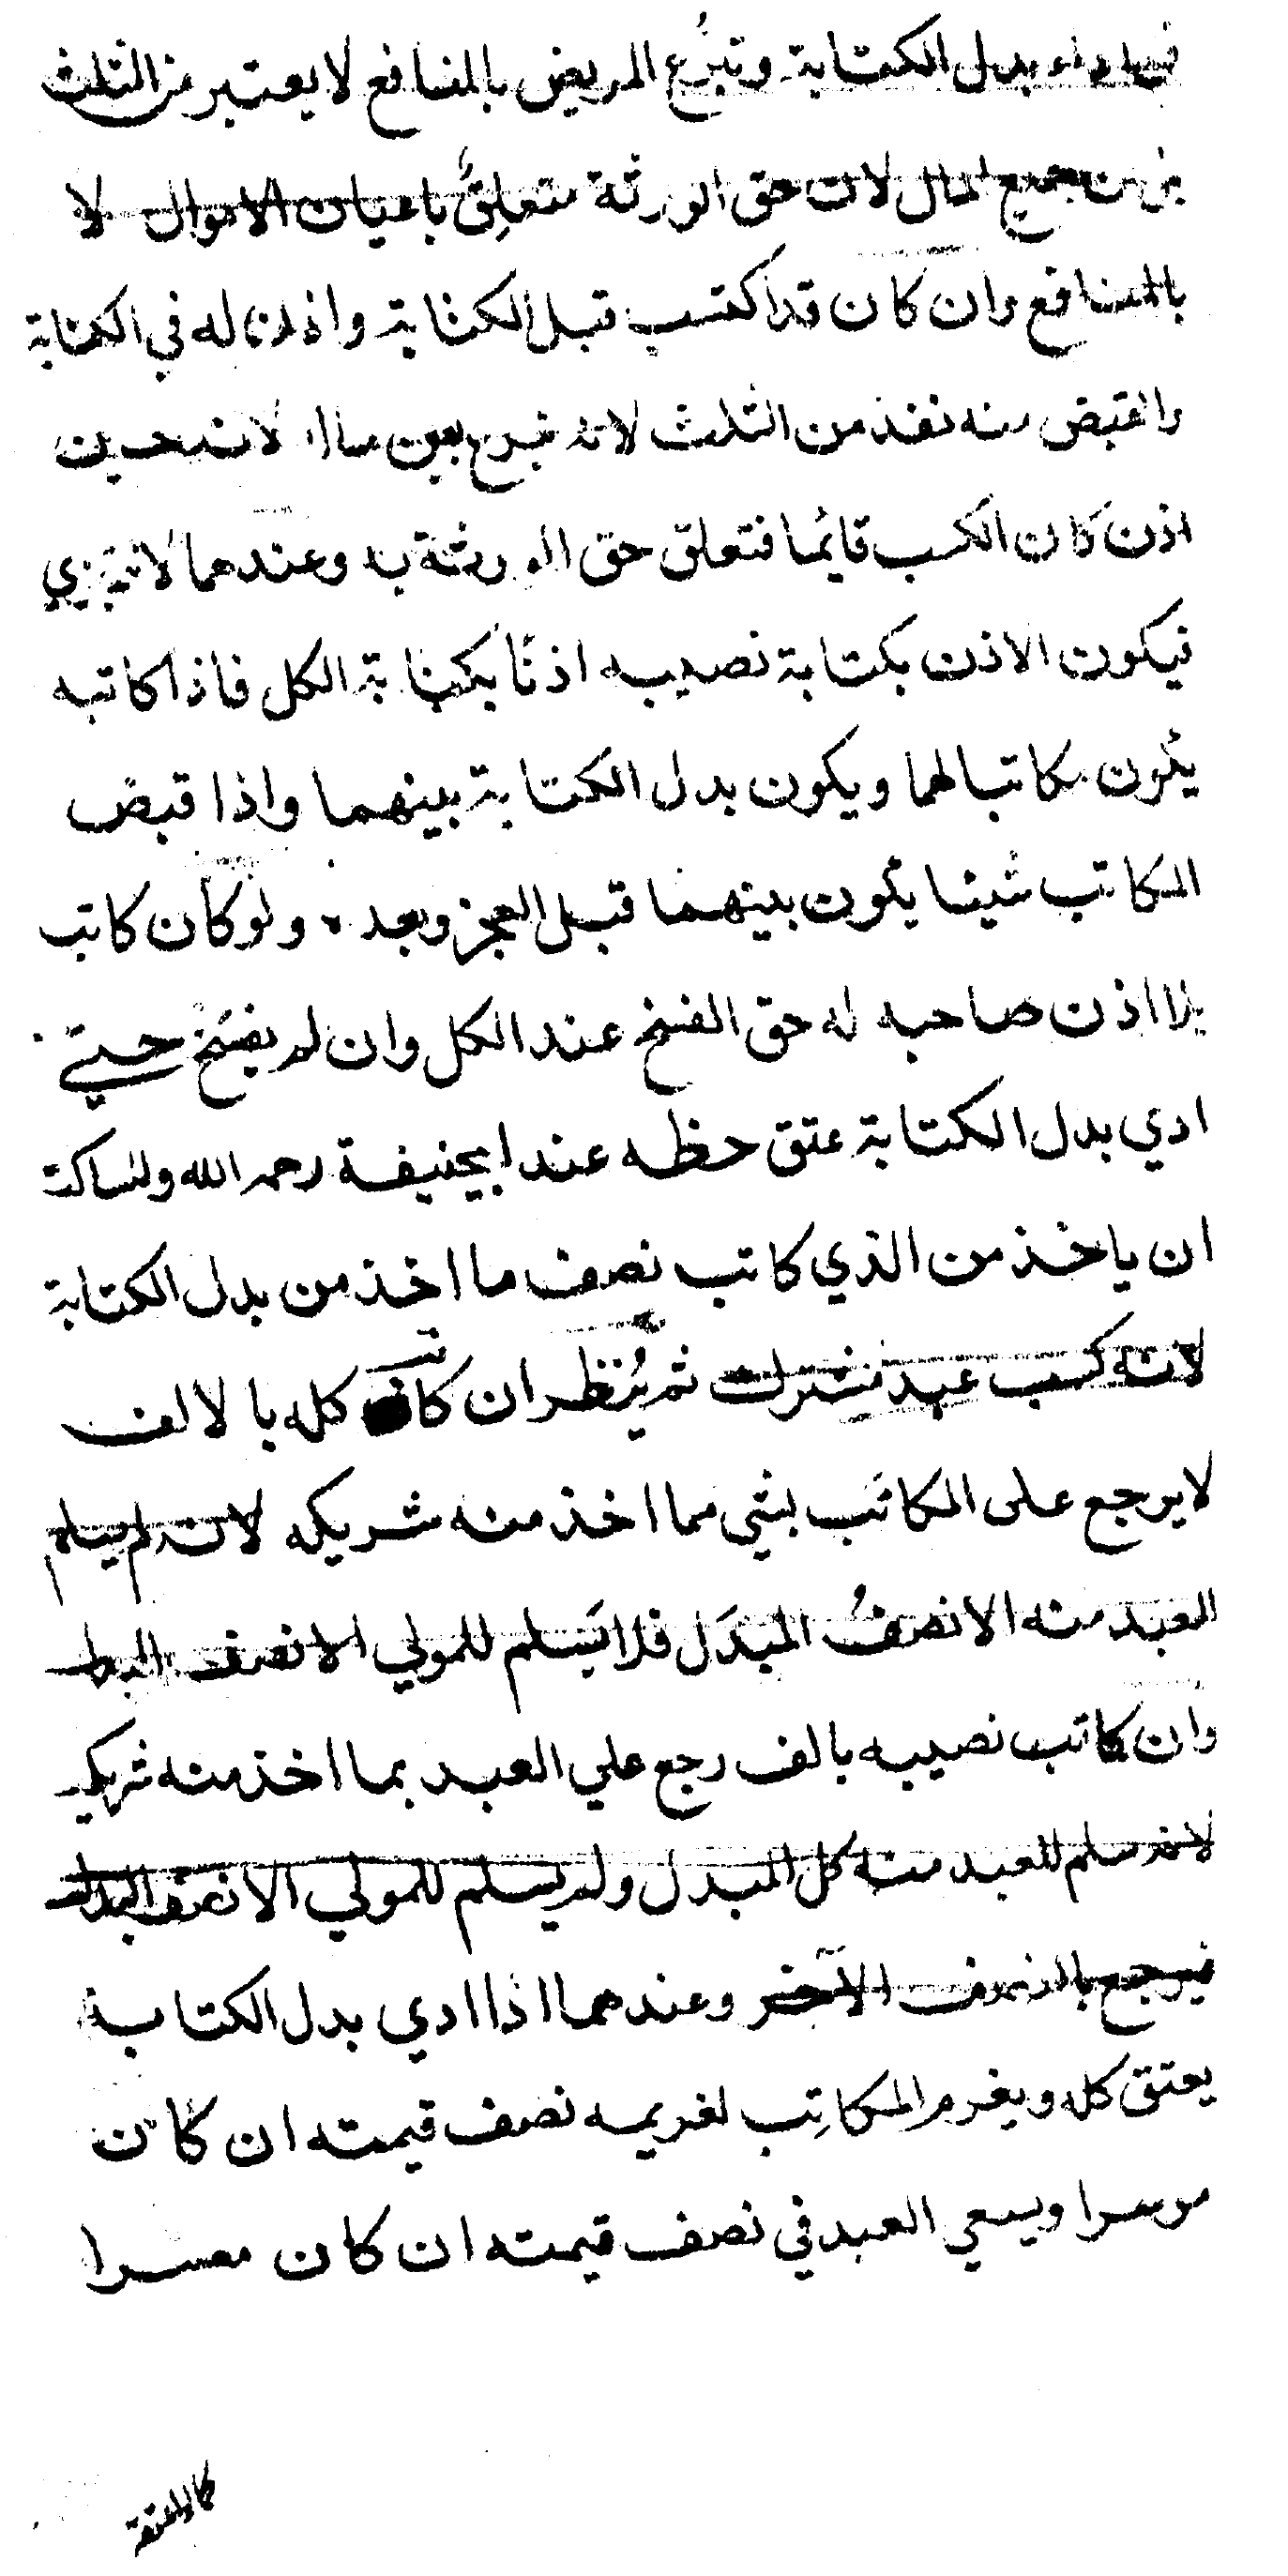 في اداء بدل الكتابة وتبرُّع المريض بالمنافع لا يعتبر من الثلث
بل من جميع المال لان حق الورثة متعلِقٌ باعيان الاموال لا
بالمنافع وان كان قد اكتسب قبل الكتابة واذن له في الكتابة
والقبض منه نفذ من الثلث لانه تبرع بعين ماله لانه حين
اذن كان الكسب قائما فتعلق حق الورثة به وعندهما لا تتجزي
فيكون الاذن بكتابة نصيبه اذنًا بكتابة الكل فاذا كاتبه
يكون مكاتبا لهما ويكون بدل الكتابة بينهما واذا قبض
المكاتب شيئا يكون بينهما قبل العجز وبعده ولو كان كاتب
بلا اذن صاحبه له حق الفسخ عند الكل وان لم يفسَخ حتي
ادي بدل الكتابة عتق حظه عند ابيحنيفة رحمه الله وللساكت
ان ياخذ من الذي كاتب نصف ما اخذ من بدل الكتابة
لانه كسب عبد مشترك ثم يُنظر ان كاتب كله بالالف
لا يرجع على المكاتَب بشي مما اخذ منه شريكه لانه لم يسلم
العبد منه الا نصفُ المبدَل فلا يَسلم للمولي الا نصف البدل
وان كاتب نصيبه بالف رجع علي العبد بما اخذ منه شريكه
لانه سلم للعبد منه كل المبدل ولم يسلم للمولي الا نصف البدل
فيرجع بالنصف الآخر وعندهما اذا ادي بدل الكتابة
يعتق كله ويغرم المكاتِب لغريمه نصف قيمته ان كان
موسرا ويسعي العبد في نصف قيمته ان كان معسرا
كما لو اعتقه